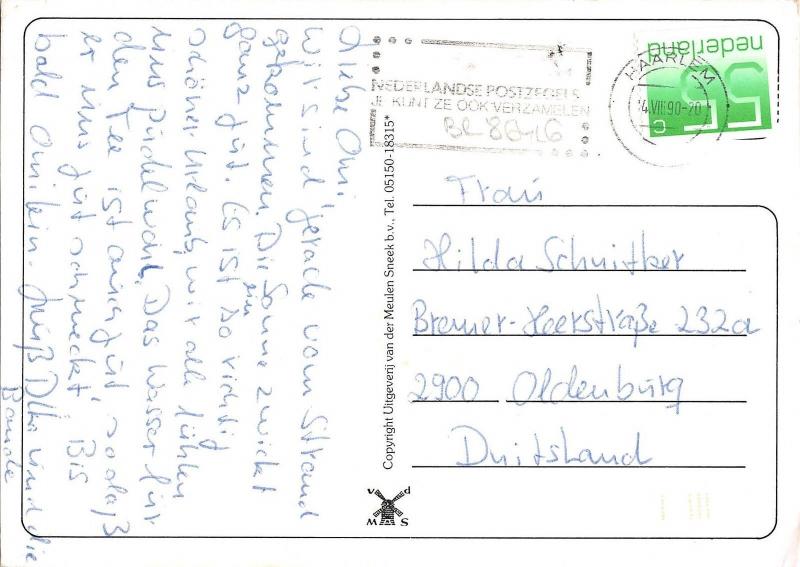 Liebe Omi,
wir sind gerade vom Strand
gekommen. Die Sonne zwickt
ganz gut. Es ist ein so richtig
schöner Urlaub, wir alle fühlen
uns pudelwohl. Das Wasser für
den Tee ist auch gut, sodaß
er uns gut schmeckt. Bis
bald Omilein. Gruß und die
Bande
NEDERLANDSE POSTZEGELS
JE KUNT ZE OOK VERZAMELEN
HAARLEM
4.VII.90-20
C
nederland
55
Frau
Hilda Schnitker
Bremer-Heerstraße 232a
2900 Oldenburg
Duitsland
Copyright Uitgeverij van der Meulen Sneek b.v., Tel. 05150-18315*
v d
M S